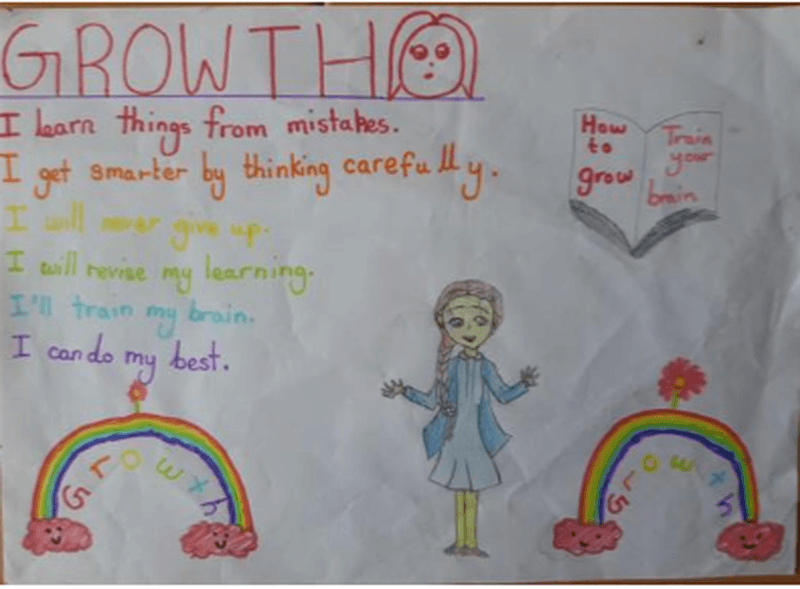 GROWTH
I learn things from mistakes.
I get smarter by thinking carefully.
I will never give up.
I will revise my learning.
I'll train my brain.
I can do my best.
How
to
grow
Train
your
brain
Growth
Growth